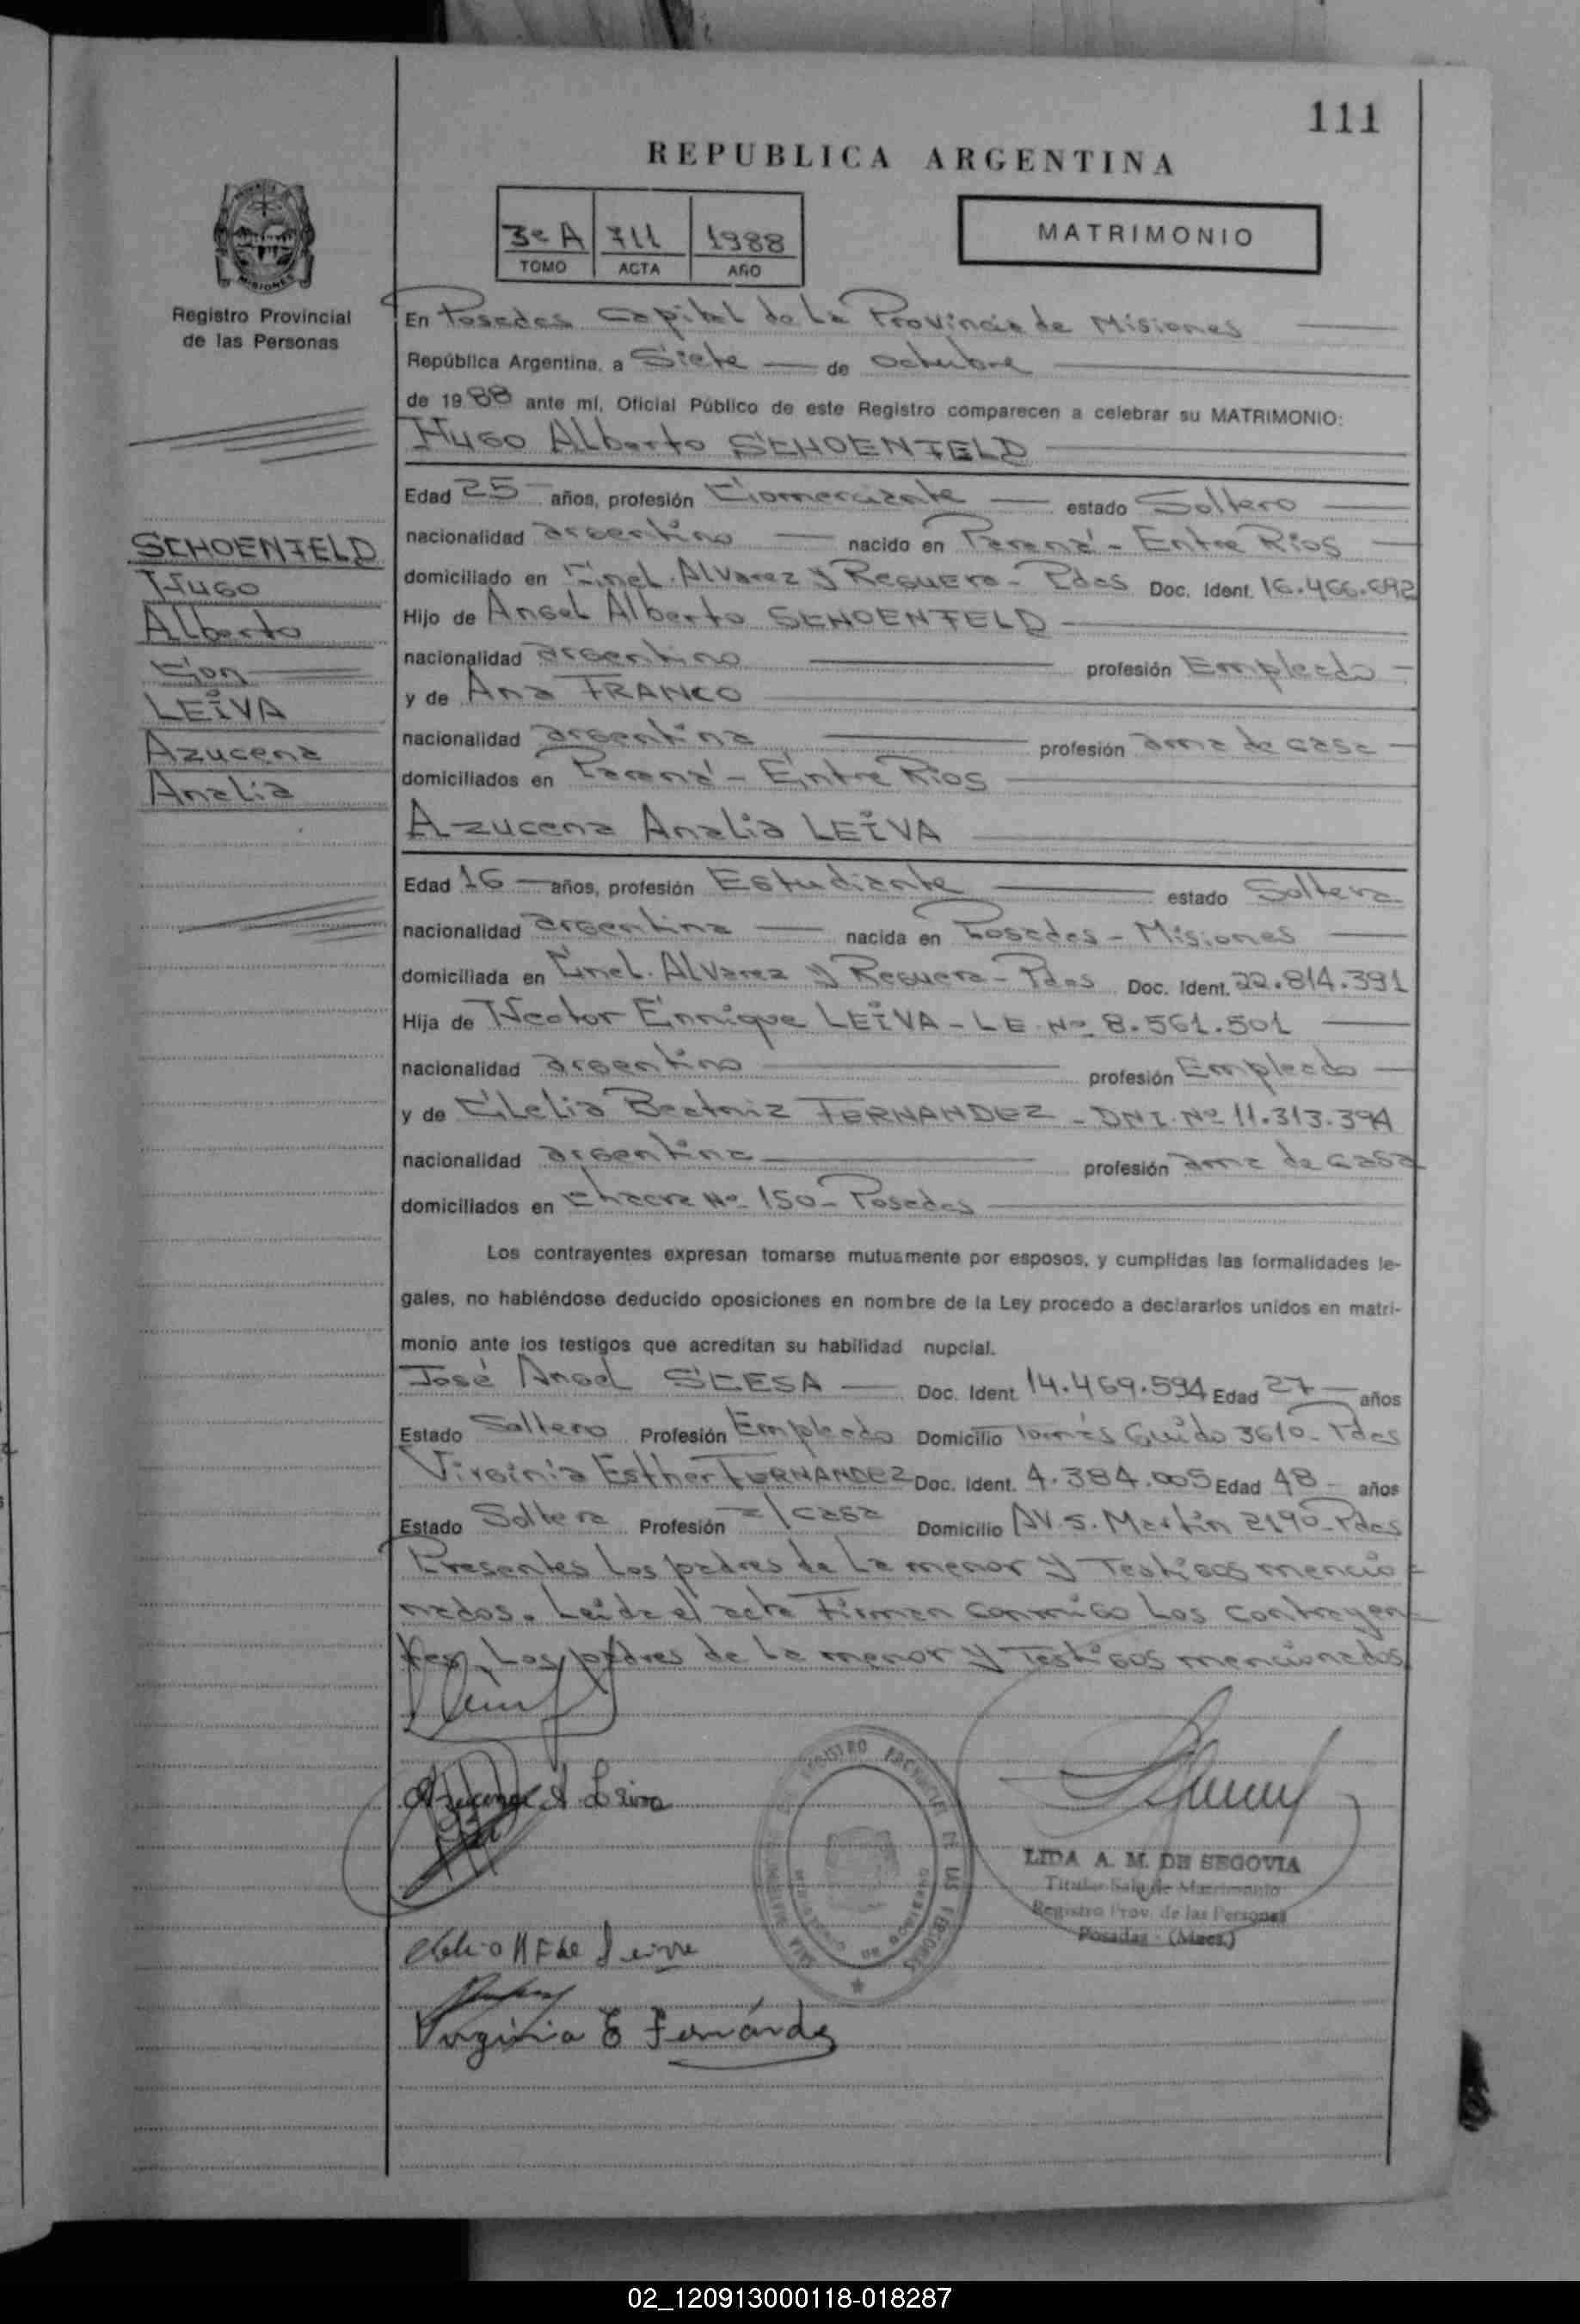 111
REPUBLICA ARGENTINA
3e A 711 1988
TOMO ACTA AÑO
MATRIMONIO
MISIONES
Registro Provincial
de las Personas
En Posadas Capital de La Provincia de Misiones
República Argentina, a Siete de octubre
de 1988 ante mí, Oficial Público de este Registro comparecen a celebrar su MATRIMONIO:
Hugo Alberto SCHOENFELD
Edad 25 años, profesión Comerciante estado Soltero
nacionalidad argentino nacido en Paraná - Entre Rios
domiciliado en Cnel. Alvarez y Reguera - Pdas Doc. Ident. 16.466.692
Hijo de Angel Alberto SCHOENFELD
nacionalidad argentino profesión Empleado
y de Ana FRANCO
nacionalidad argentina profesión ama de casa
domiciliados en Paraná - Entre Rios
SCHOENFELD
Hugo
Alberto
Con
LEIVA
Azucena
Analia
Azucena Analia LEIVA
Edad 16 años, profesión Estudiante estado Soltera
nacionalidad argentina nacida en Posadas - Misiones
domiciliada en Cnel. Alvarez y Reguera - Pdas Doc. Ident. 22.814.391
Hija de Hector Enrique LEIVA - LE Nº 8.561.501
nacionalidad argentino profesión Empleado
y de Clelia Beatriz FERNANDEZ - DNI. Nº 11.313.394
nacionalidad argentina profesión ama de casa
domiciliados en chacra Nº 150 - Posadas
Los contrayentes expresan tomarse mutuamente por esposos, y cumplidas las formalidades le-
gales, no habiéndose deducido oposiciones en nombre de la Ley procedo a declararlos unidos en matri-
monio ante los testigos que acreditan su habilidad nupcial.
José Angel SCESA Doc. Ident. 14.469.594 Edad 27 años
Estado Soltero Profesión Empleado Domicilio Tomás Guido 3610 - Pdas
Virginia Esther FERNANDEZ Doc. Ident. 4.384.005 Edad 48 - años
Estado Soltera Profesión a/casa Domicilio AV. S. Martín 2190 - Pdas
Presentes Los padres de La menor y Testigos mencio=
nados. Leida el acta Firman conmigo Los contrayen=
tes, Los padres de La menor y Testigos mencionados
Azucena A. Leiva
LIDA A. M. DE SEGOVIA
Titular Sala de Matrimonio
Registro Prov. de las Personas
Posadas - (Mnes.)
REGISTRO PROVINCIAL DE LAS PERSONAS
Virginia E Fernández
02_120913000118-018287